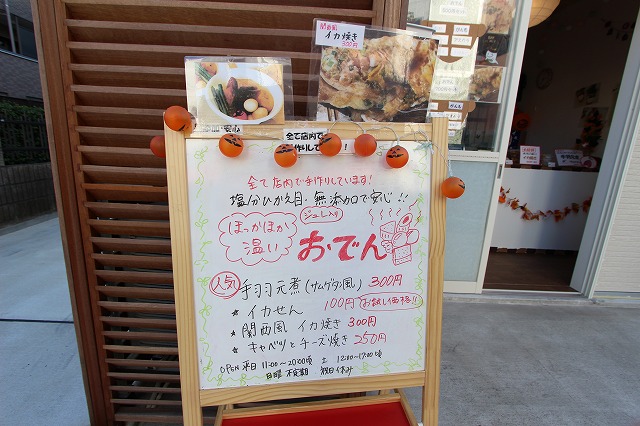 関西風
イカ焼き
300円
全て店内で
手作りしています!
全て店内で手作りしています!
塩分ひかえ目・無添加で安心!!
ほっかほか
温い
ジュレ入り
おでん
人気
手羽元煮(サムゲタン風) 300円
★ イカせん 100円 お試し価格!!
★ 関西風 イカ焼き 300円
★ キャベツとチーズ焼き 250円
OPEN 平日 11:00~20:00頃 土 12:00~17:00頃
日曜 不定期 祝日休み